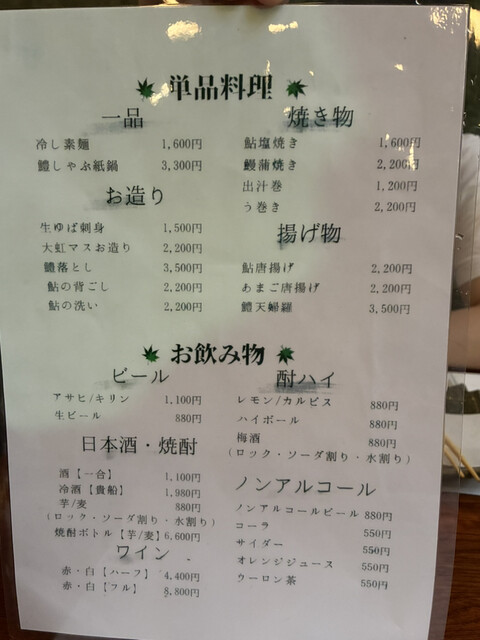 単品料理
一品
冷し素麺 1,600円
鱧しゃぶ紙鍋 3,300円
お造り
生ゆば刺身 1,500円
大虹マスお造り 2,200円
鱧落とし 3,500円
鮎の背ごし 2,200円
鮎の洗い 2,200円
焼き物
鮎塩焼き 1,600円
鰻蒲焼き 2,200円
出汁巻 1,200円
う巻き 2,200円
揚げ物
鮎唐揚げ 2,200円
あまご唐揚げ 2,200円
鱧天婦羅 3,500円
お飲み物
ビール
アサヒ/キリン 1,100円
生ビール 880円
日本酒・焼酎
酒【一合】 1,100円
冷酒【貴船】 1,980円
芋/麦 880円
(ロック・ソーダ割り・水割り)
焼酎ボトル【芋/麦】 6,600円
ワイン
赤・白【ハーフ】 4,400円
赤・白【フル】 8,800円
酎ハイ
レモン/カルピス 880円
ハイボール 880円
梅酒 880円
(ロック・ソーダ割り・水割り)
ノンアルコール
ノンアルコールビール 880円
コーラ 550円
サイダー 550円
オレンジジュース 550円
ウーロン茶 550円